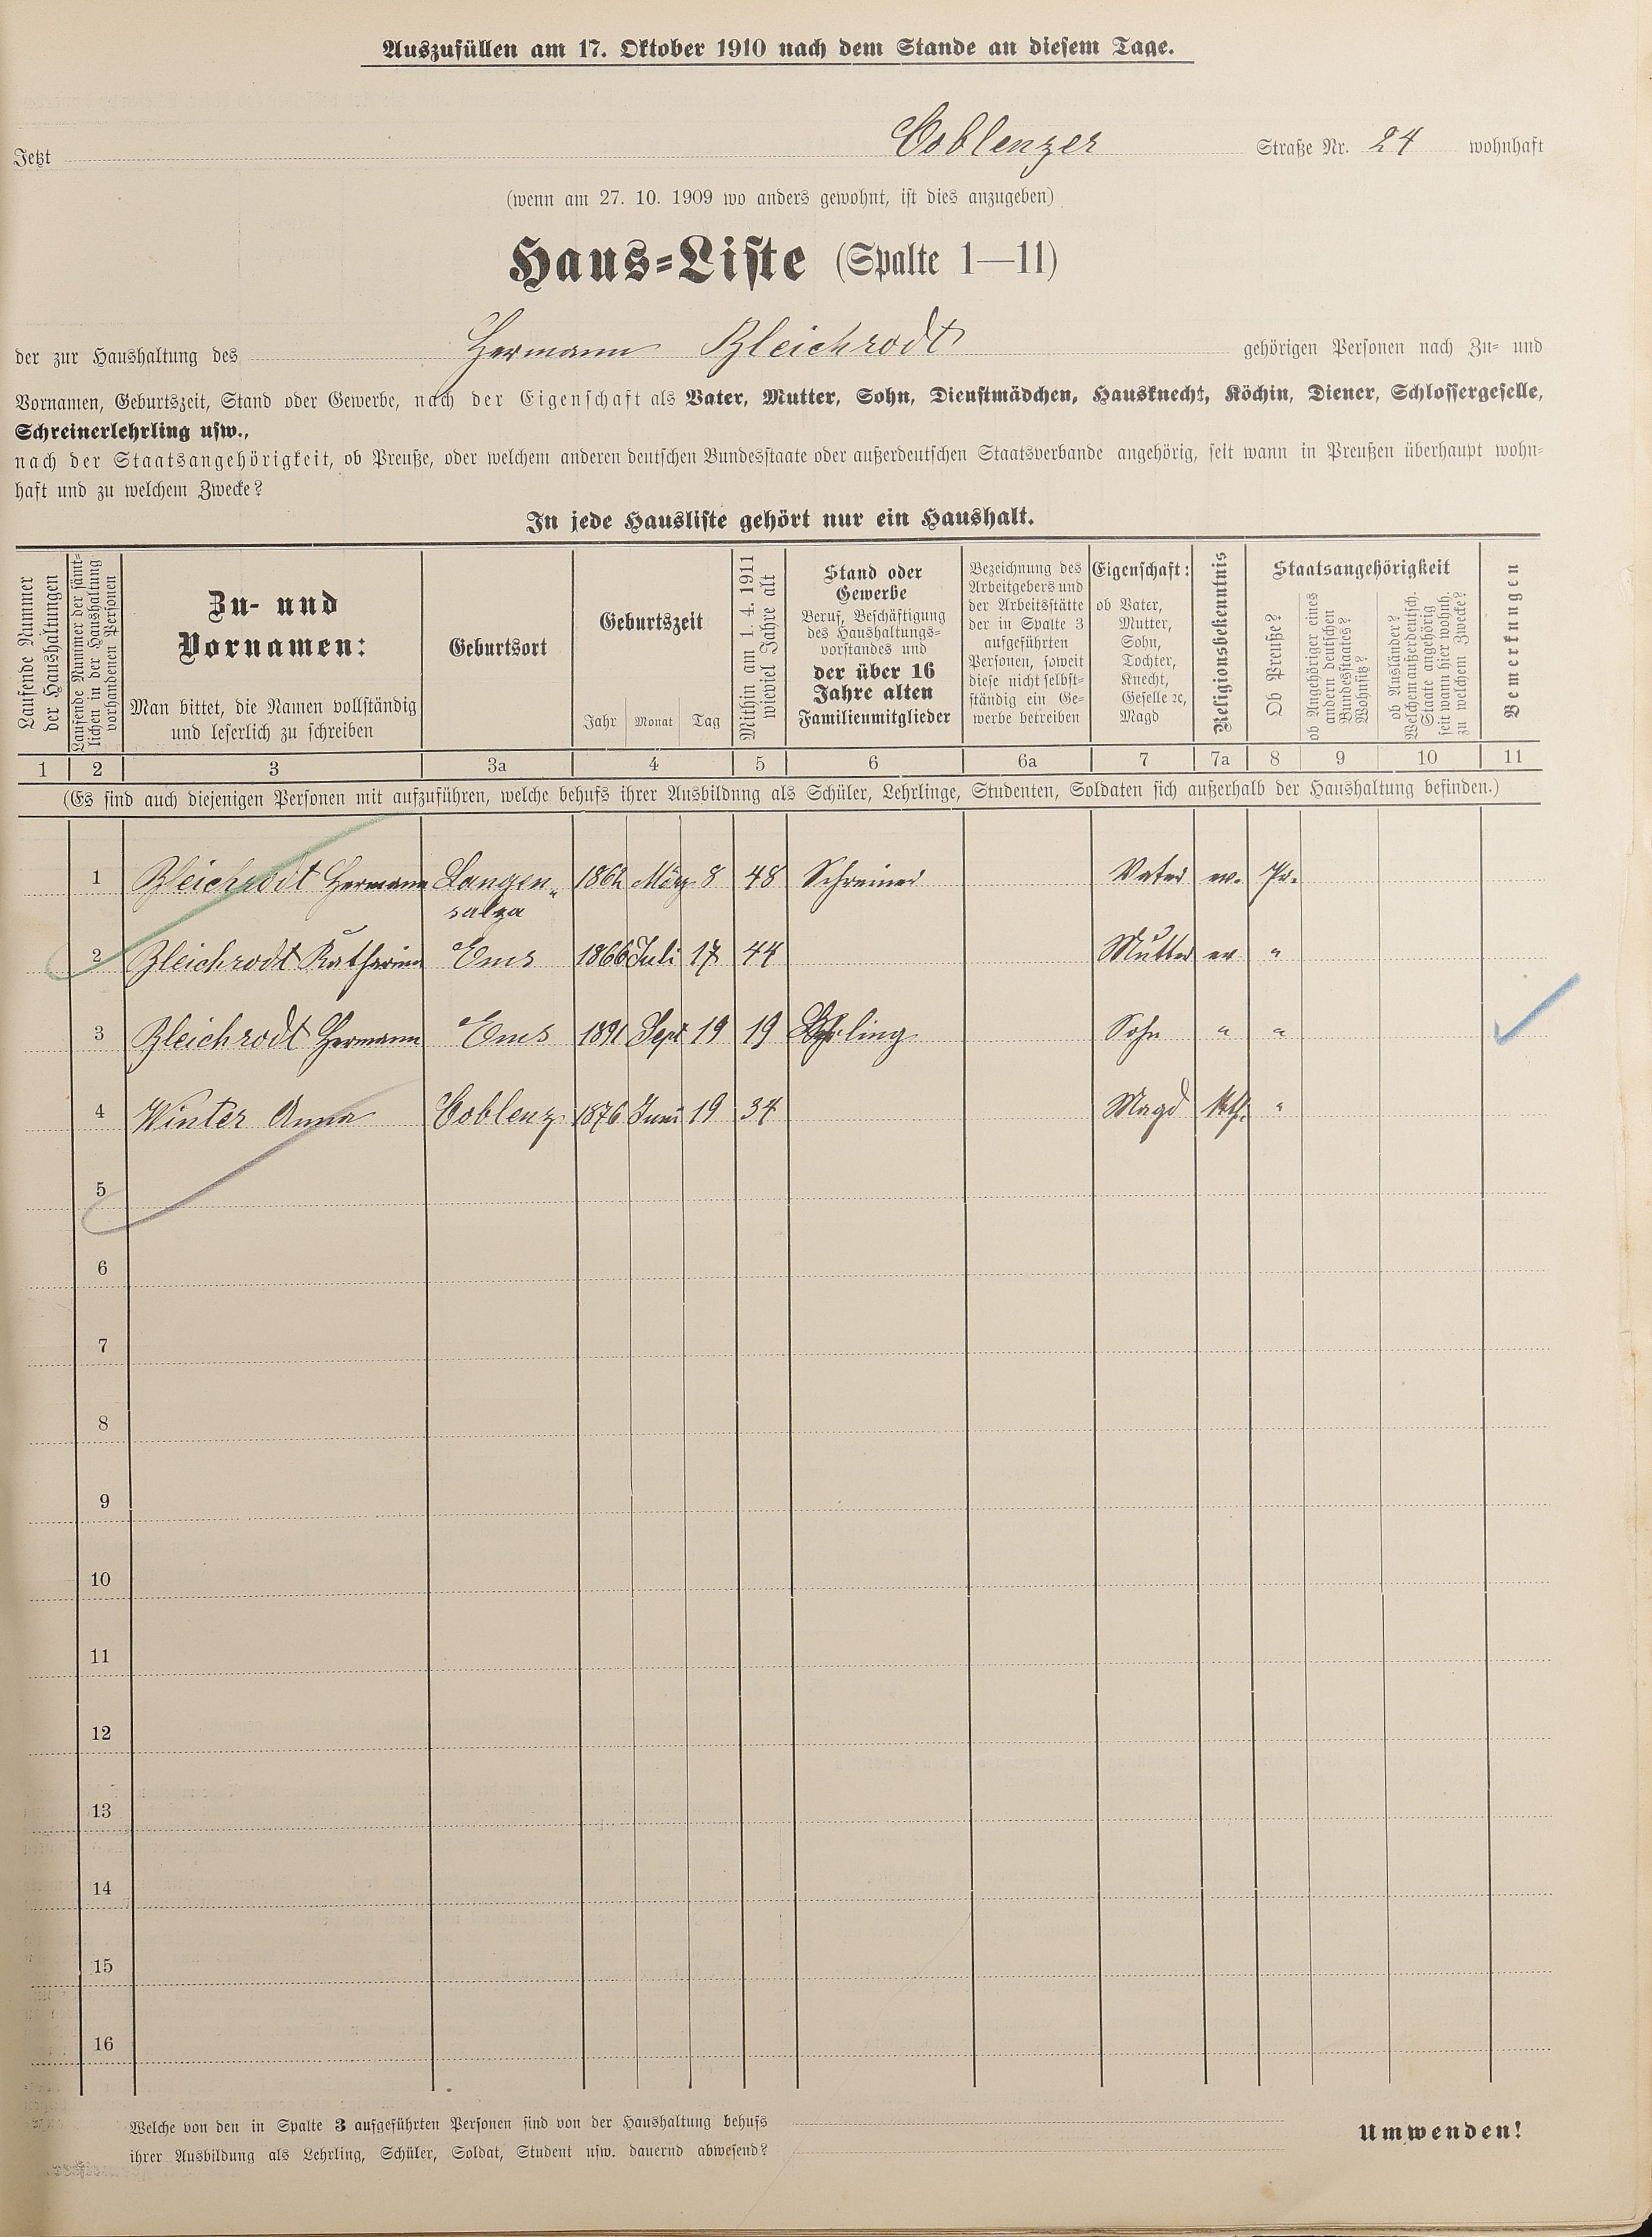 Auszufüllen am 17. Oktober 1910 nach dem Stande an diesem Tage.
Jetzt Coblenzer Straße Nr. 24 wohnhaft
(wenn am 27. 10. 1909 wo anders gewohnt, ist dies anzugeben)
Haus=Liste (Spalte 1—11)
der zur Haushaltung des Hermann Bleichrodt gehörigen Personen nach Zu= und
Vornamen, Geburtszeit, Stand oder Gewerbe, nach der Eigenschaft als Vater, Mutter, Sohn, Dienstmädchen, Hausknecht, Köchin, Diener, Schlossergeselle,
Schreinerlehrling usw.,
nach der Staatsangehörigkeit, ob Preuße, oder welchem anderen deutschen Bundesstaate oder außerdeutschen Staatsverbande angehörig, seit wann in Preußen überhaupt wohn=
haft und zu welchem Zwecke?
In jede Hausliste gehört nur ein Haushalt.
Laufende Nummer
der Haushaltungen
Laufende Nummer der sämt=
lichen in der Haushaltung
vorhandenen Personen
Zu- und
Vornamen:
Man bittet, die Namen vollständig
und leserlich zu schreiben
Geburtsort
Geburtszeit
Jahr Monat Tag
Mithin am 1. 4. 1911
wieviel Jahre alt
Stand oder
Gewerbe
Beruf, Beschäftigung
des Haushaltungs=
vorstandes und
der über 16
Jahre alten
Familienmitglieder
Bezeichnung des
Arbeitgebers und
der Arbeitsstätte
der in Spalte 3
aufgeführten
Personen, soweit
diese nicht selbst=
ständig ein Ge=
werbe betreiben
Eigenschaft:
ob Vater,
Mutter,
Sohn,
Tochter,
Knecht,
Geselle ꝛc,
Magd
Religionsbekenntnis
Staatsangehörigkeit
Ob Preuße?
ob Angehöriger eines
andern deutschen
Bundesstaates?
Wohnsitz?
ob Ausländer?
Welchem außerdeutsch.
Staate angehörig
seit wann hier wohnh.
zu welchem Zwecke?
Bemerkungen
1 2 3 3a 4 5 6 6a 7 7a 8 9 10 11
(Es sind auch diejenigen Personen mit aufzuführen, welche behufs ihrer Ausbildnng als Schüler, Lehrlinge, Studenten, Soldaten sich außerhalb der Haushaltung befinden.)
1 Bleichrodt Hermann Langen„ 1862 März 8 48 Schreiner Vater ev. Pr.
salza
2 Bleichrodt Katharina Ems 1866 Juli 17 44 Mutter ev "
3 Bleichrodt Hermann Ems 1891 Sept 19 19 Lehrling Sohn " "
4 Winter Anna Coblenz 1876 Juni 19 34 Magd kth. "
5
6
7
8
9
10
11
12
13
14
15
16
Welche von den in Spalte 3 aufgeführten Personen sind von der Haushaltung behufs
ihrer Ausbildung als Lehrling, Schüler, Soldat, Student usw. dauernd abwesend?
Umwenden!